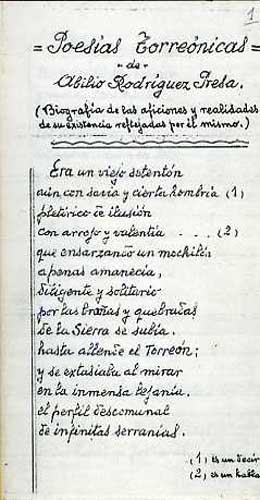 1
= Poesías Torreónicas =
- de -
Abilio Rodríguez Presa.
(Biografía de las aficiones y realidades
de su existencia reflejadas por él mismo.)
Era un viejo setentón
aún con savia y cierta hombría (1)
pletórico de ilusión
con arrojo y valentía . . . . (2)
que ensarzando un mochilón
apenas amanecía,
diligente y solitario
por las brañas y quebradas
de la Sierra se subía.
hasta allende el Torreón;
y se extasiaba al mirar
en la inmensa lejanía.
el perfil descomunal
de infinitas serranías.
(1) es un decir
(2) es un habla